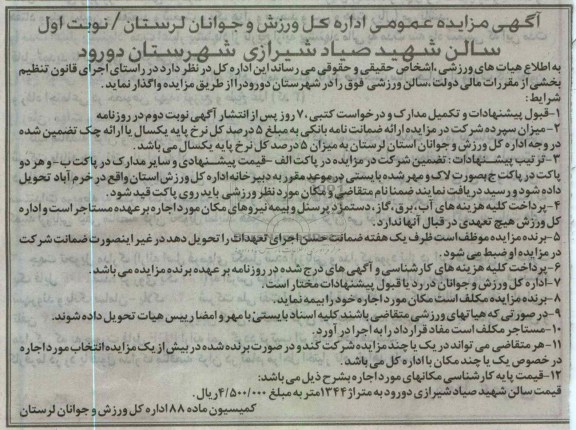 آگهی مزایده عمومی اداره کل ورزش و جوانان لرستان / نوبت اول
سالن شهید صیاد شیرازی شهرستان دورود
به اطلاع هیات های ورزشی، اشخاص حقیقی و حقوقی می رساند این اداره کل در نظر دارد در راستای اجرای قانون تنظیم
بخشی از مقررات مالی دولت، سالن ورزشی فوق را در شهرستان دورود را از طریق مزایده واگذار نماید.
شرایط:
۱-قبول پیشنهادات و تکمیل مدارک و درخواست کتبی، ۷ روز پس از انتشار آگهی نوبت دوم در روزنامه
۲-میزان سپرده شرکت در مزایده ارائه ضمانت نامه بانکی به مبلغ ۵ درصد کل نرخ پایه یکسال یا ارائه چک تضمین شده
در وجه اداره کل ورزش و جوانان استان لرستان به میزان ۵ درصد کل نرخ پایه یکسال می باشد.
۳-ترتیب پیشنهادات: تضمین شرکت در مزایده در پاکت الف -قیمت پیشنهادی و سایر مدارک در پاکت ب-و هر دو
پاکت در پاکت ج بصورت لاک و مهر شده بایستی در موعد مقرر به دبیرخانه اداره کل ورزش استان واقع در خرم آباد تحویل
داده شود و رسید دریافت نمایند ضمنا نام متقاضی و مکان مورد نظر ورزشی باید روی پاکت قید شود.
۴-پرداخت کلیه هزینه های آب، برق، گاز، دستمزد پرسنل و بیمه نیروهای مکان مورد اجاره بر عهده مستاجر است و اداره
کل ورزش هیچ تعهدی در قبال آنها ندارد.
۵-برنده مزایده موظف است ظرف یک هفته ضمانت حسن اجرای تعهدات را تحویل دهد در غیر اینصورت ضمانت شرکت
در مزایده او ضبط می شود.
۶-پرداخت کلیه هزینه های کارشناسی و آگهی های درج شده در روزنامه بر عهده برنده مزایده می باشد.
۷-اداره کل ورزش و جوانان در رد یا قبول پیشنهادات مختار است.
۸-برنده مزایده مکلف است مکان مورد اجاره خود را بیمه نماید.
۹-در صورتی که هیاتهای ورزشی متقاضی باشند کلیه اسناد بایستی با مهر و امضا رییس هیات تحویل داده شوند.
۱۰-مستاجر مکلف است مفاد قرارداد را به اجرا در آورد.
۱۱-هر متقاضی می تواند در یک یا چند مزایده شرکت کند و در صورت برنده شده در بیش از یک مزایده انتخاب مورد اجاره
در خصوص یک یا چند مکان با اداره کل می باشد.
۱۲-قیمت پایه کارشناسی مکانهای مورد اجاره بشرح ذیل می باشد:
قیمت سالن شهید صیاد شیرازی دورود به متراژ ۱۳۴۴متر به مبلغ ۴/۵۰۰/۰۰۰ریال.
کمیسیون ماده ۸۸ اداره کل ورزش و جوانان لرستان